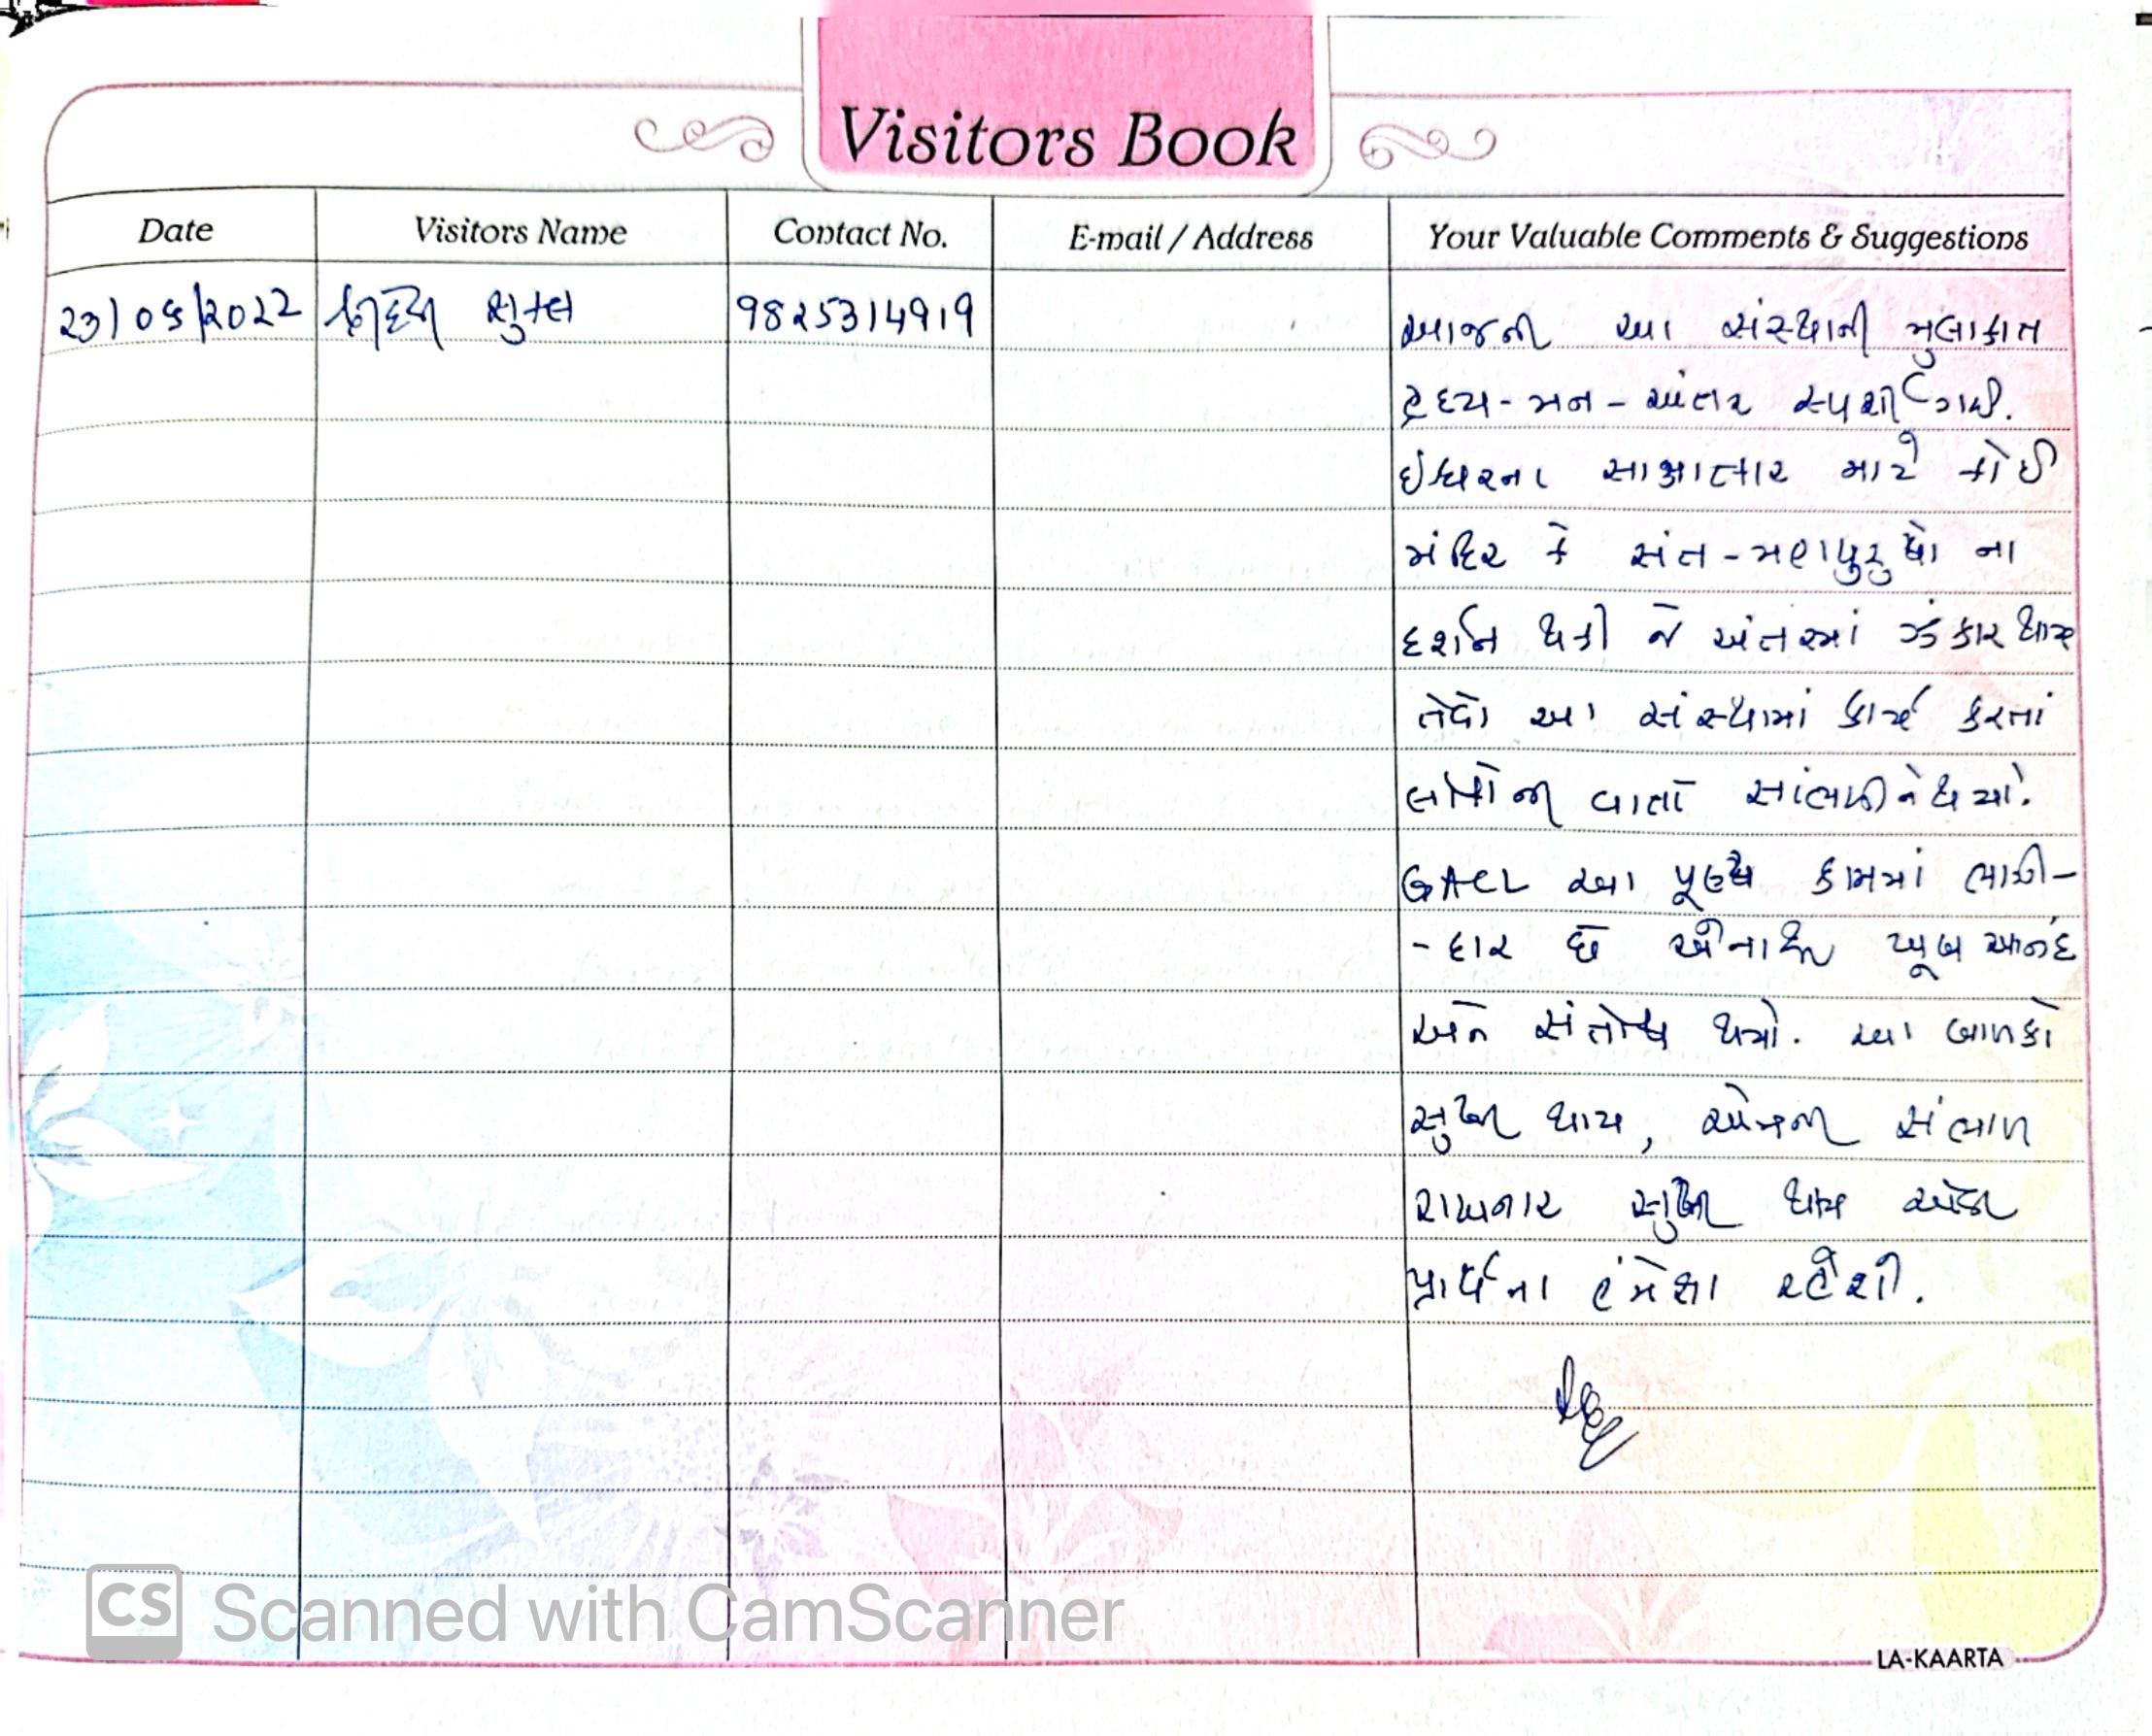 Visitors Book
Date Visitors Name Contact No. E-mail / Address Your Valuable Comments & Suggestions
23/05/2022 શુક્લ 9825314919 આજની આ સંસ્થાની મુલાકાત
હૃદય-મન-અંતર સ્પર્શી ગઈ.
ઈશ્વરના સાક્ષાત્કાર માટે કોઈ
મંદિર કે સંત-મહાપુરુષો ના
દર્શન થકી જે અંતરમાં ઝંકાર થાય
તેવો આ સંસ્થામાં કાર્ય કરતાં
લોકોની વાતો સાંભળીને થયો.
GACL આ પૂણ્ય કામમાં ભાગી-
-દાર છે એનાથી ખૂબ આનંદ
અને સંતોષ થયો. આ બાળકો
સુખી થાય, એમની સંભાળ
રાખનાર સુખી થાય એવી
પ્રાર્થના હંમેશા રહેશે.
CS Scanned with CamScanner
LA-KAARTA